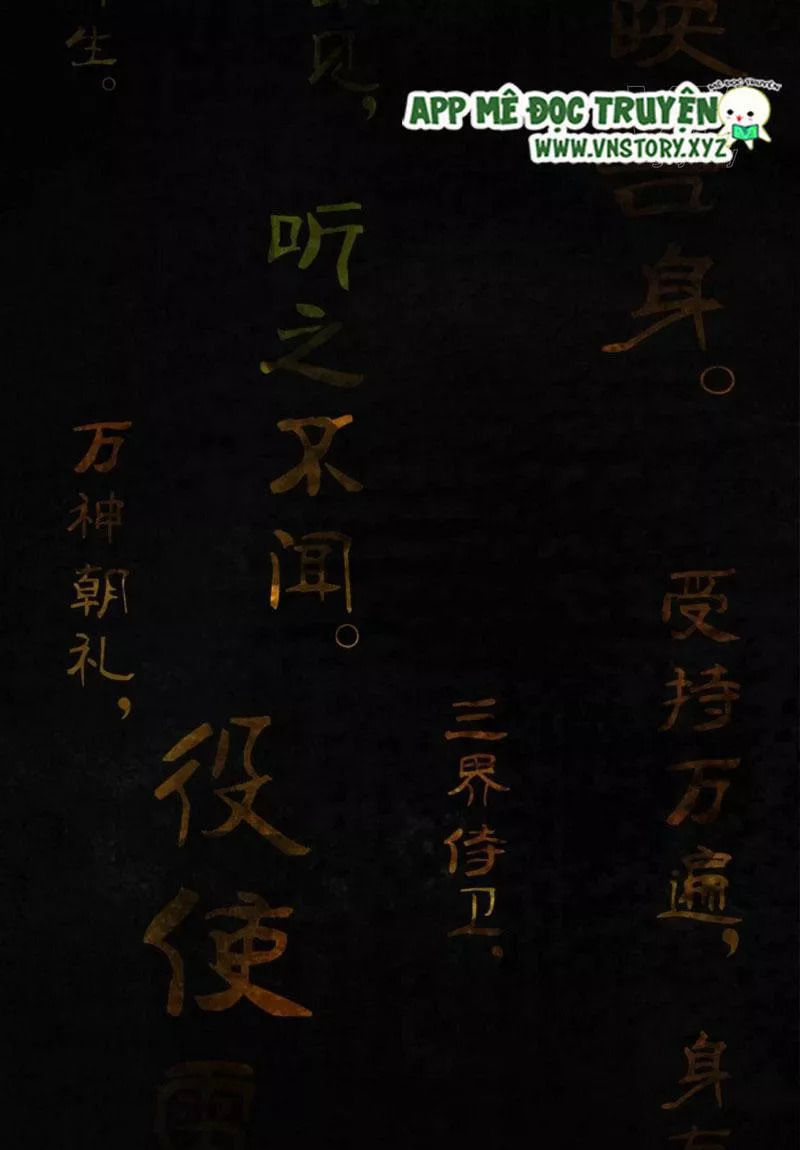 APP MÊ ĐỌC TRUYỆN
MÊ ĐỌC TRUYỆN
WWW.VNSTORY.XYZ
映吾身。
受持万遍，
身
三界侍卫，
见，
听之不闻。
役使雷
生。
万神朝礼，